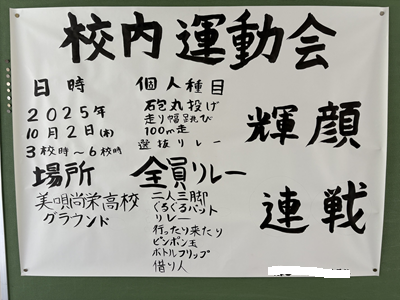 校内運動会
日時
2025年
10月2日(木)
3校時〜6校時
場所
美唄尚栄高校
グラウンド
個人種目
砲丸投げ
走り幅跳び
100m走
選抜リレー
全員リレー
二人三脚
ぐるぐるバット
リレー
行ったり来たり
ピンポン玉
ボトルフリップ
借り人
輝顔
連戦